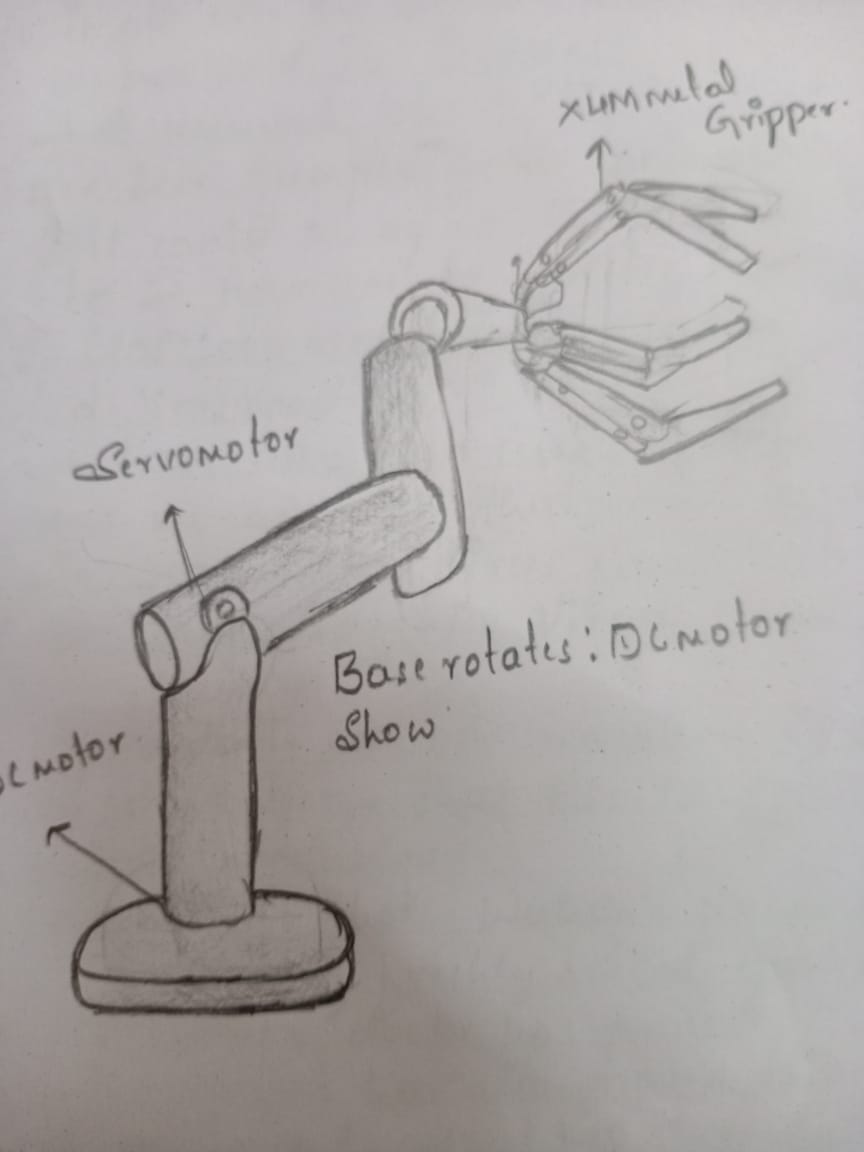 metal
Gripper.
Servomotor
Base rotates: DC Motor
Show
C Motor